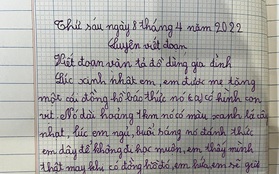 Thứ sáu ngày 8 tháng 4 năm 2022
Luyện viết đoạn
Viết đoạn văn tả đồ dùng gia đình
Lúc sinh nhật em, em được mẹ tặng
một cái đồng hồ báo thức nó có hình con
vịt. Nó dài khoảng 1cm nó có màu xanh lá cây
nhạt, lúc em ngủ, buổi sáng nó đánh thức
em dậy để không đi học muộn, em thấy mình
thật may khi có đồng hồ đó, em hứa em sẽ giữ